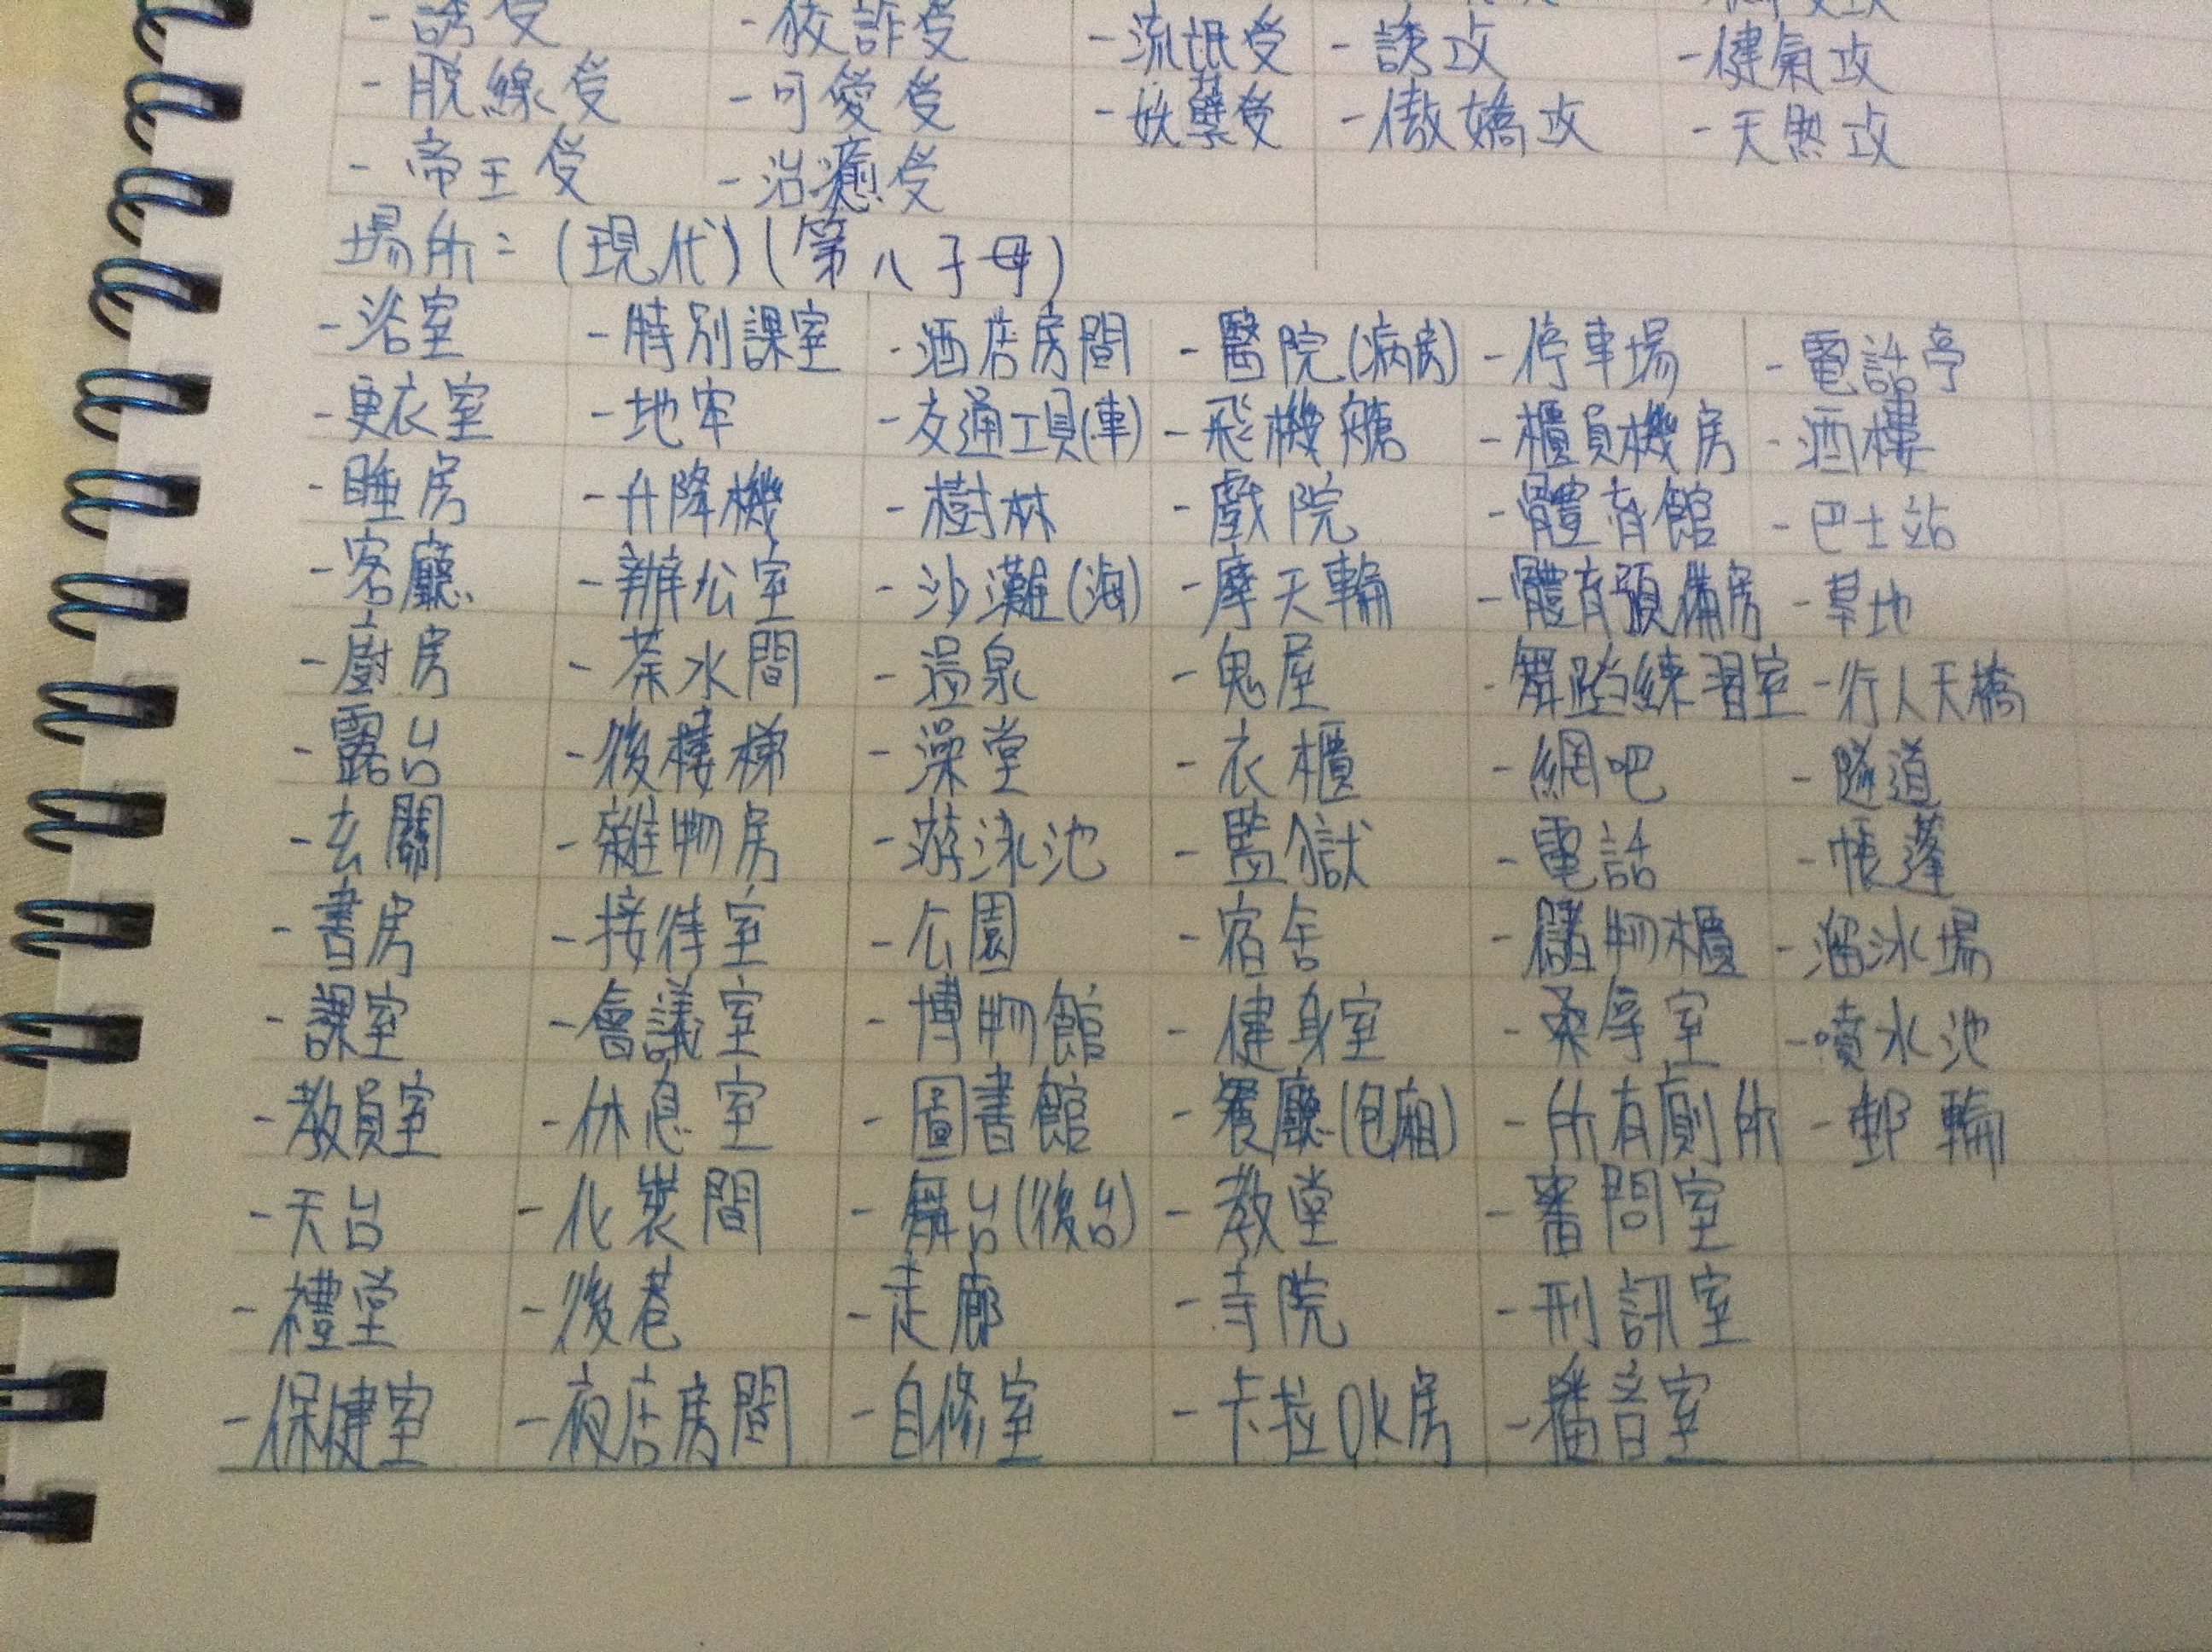 - 誘受 - 狡詐受 - 流氓受 - 誘攻 - 健氣攻
- 脫線受 - 可愛受 - 妖孽受 - 傲嬌攻 - 天然攻
- 帝王受 - 治癒受
場所：(現代)(第八字母)
- 浴室 - 特別課室 - 酒店房間 - 醫院(病房) - 停車場 - 電話亭
- 更衣室 - 地牢 - 交通工具(車) - 飛機艙 - 櫃員機房 - 酒樓
- 睡房 - 升降機 - 樹林 - 戲院 - 體育館 - 巴士站
- 客廳 - 辦公室 - 沙灘(海) - 摩天輪 - 體育預備房 - 墓地
- 廚房 - 茶水間 - 溫泉 - 鬼屋 - 舞蹈練習室 - 行人天橋
- 露台 - 後樓梯 - 澡堂 - 衣櫃 - 網吧 - 隧道
- 玄關 - 雜物房 - 游泳池 - 監獄 - 電話 - 帳蓬
- 書房 - 接待室 - 公園 - 宿舍 - 儲物櫃 - 溜冰場
- 課室 - 會議室 - 博物館 - 健身室 - 桑拿室 - 噴水池
- 教員室 - 休息室 - 圖書館 - 餐廳(包廂) - 所有廁所 - 郵輪
- 天台 - 化裝間 - 舞台(後台) - 教堂 - 審問室
- 禮堂 - 後巷 - 走廊 - 寺院 - 刑訊室
- 保健室 - 夜店房間 - 自修室 - 卡拉OK房 - 播音室